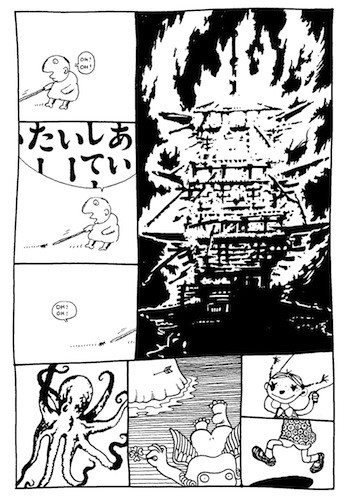 OH!
OH!
あい
して
いー
たー
OH!
OH!